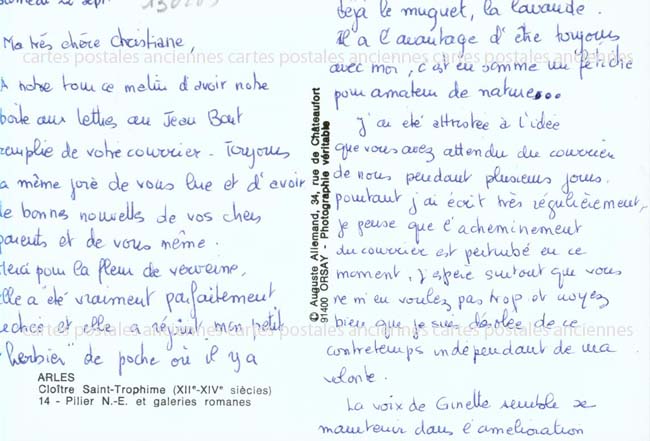 Samedi 22 sept.
130203
Ma très chère Christiane,
A notre tour ce matin d'avoir notre
boîte aux lettres au Jean Bart
remplie de votre courrier. Toujours
la même joie de vous lire et d'avoir
de bonnes nouvelles de vos chers
parents et de vous même.
Merci pour la fleur de verveine,
elle a été vraiment parfaitement
séchée et elle a rejoint mon petit
"herbier" de poche où il y a
ARLES
Cloître Saint-Trophime (XIIe-XIVe siècles)
14 - Pilier N.-E. et galeries romanes
© Auguste Allemand, 34, rue de Châteaufort
91400 ORSAY - Photographie véritable
déjà le muguet, la lavande.
Il a l'avantage d'être toujours
avec moi, c'est en somme un fétiche
pour amateur de nature...
J'ai été attristée à l'idée
que vous avez attendu du courrier
de nous pendant plusieurs jours.
pourtant j'ai écrit très régulièrement,
je pense que l'acheminement
du courrier est perturbé en ce
moment, j'espère surtout que vous
ne m'en voulez pas trop et croyez
bien que je suis désolée de ce
contretemps indépendant de ma
volonté.
La voix de Ginette semble se
maintenir dans l'amélioration
cartes postales anciennes cartes postales anciennes cartes postales anciennes
cartes postales anciennes cartes postales anciennes cartes postales anciennes